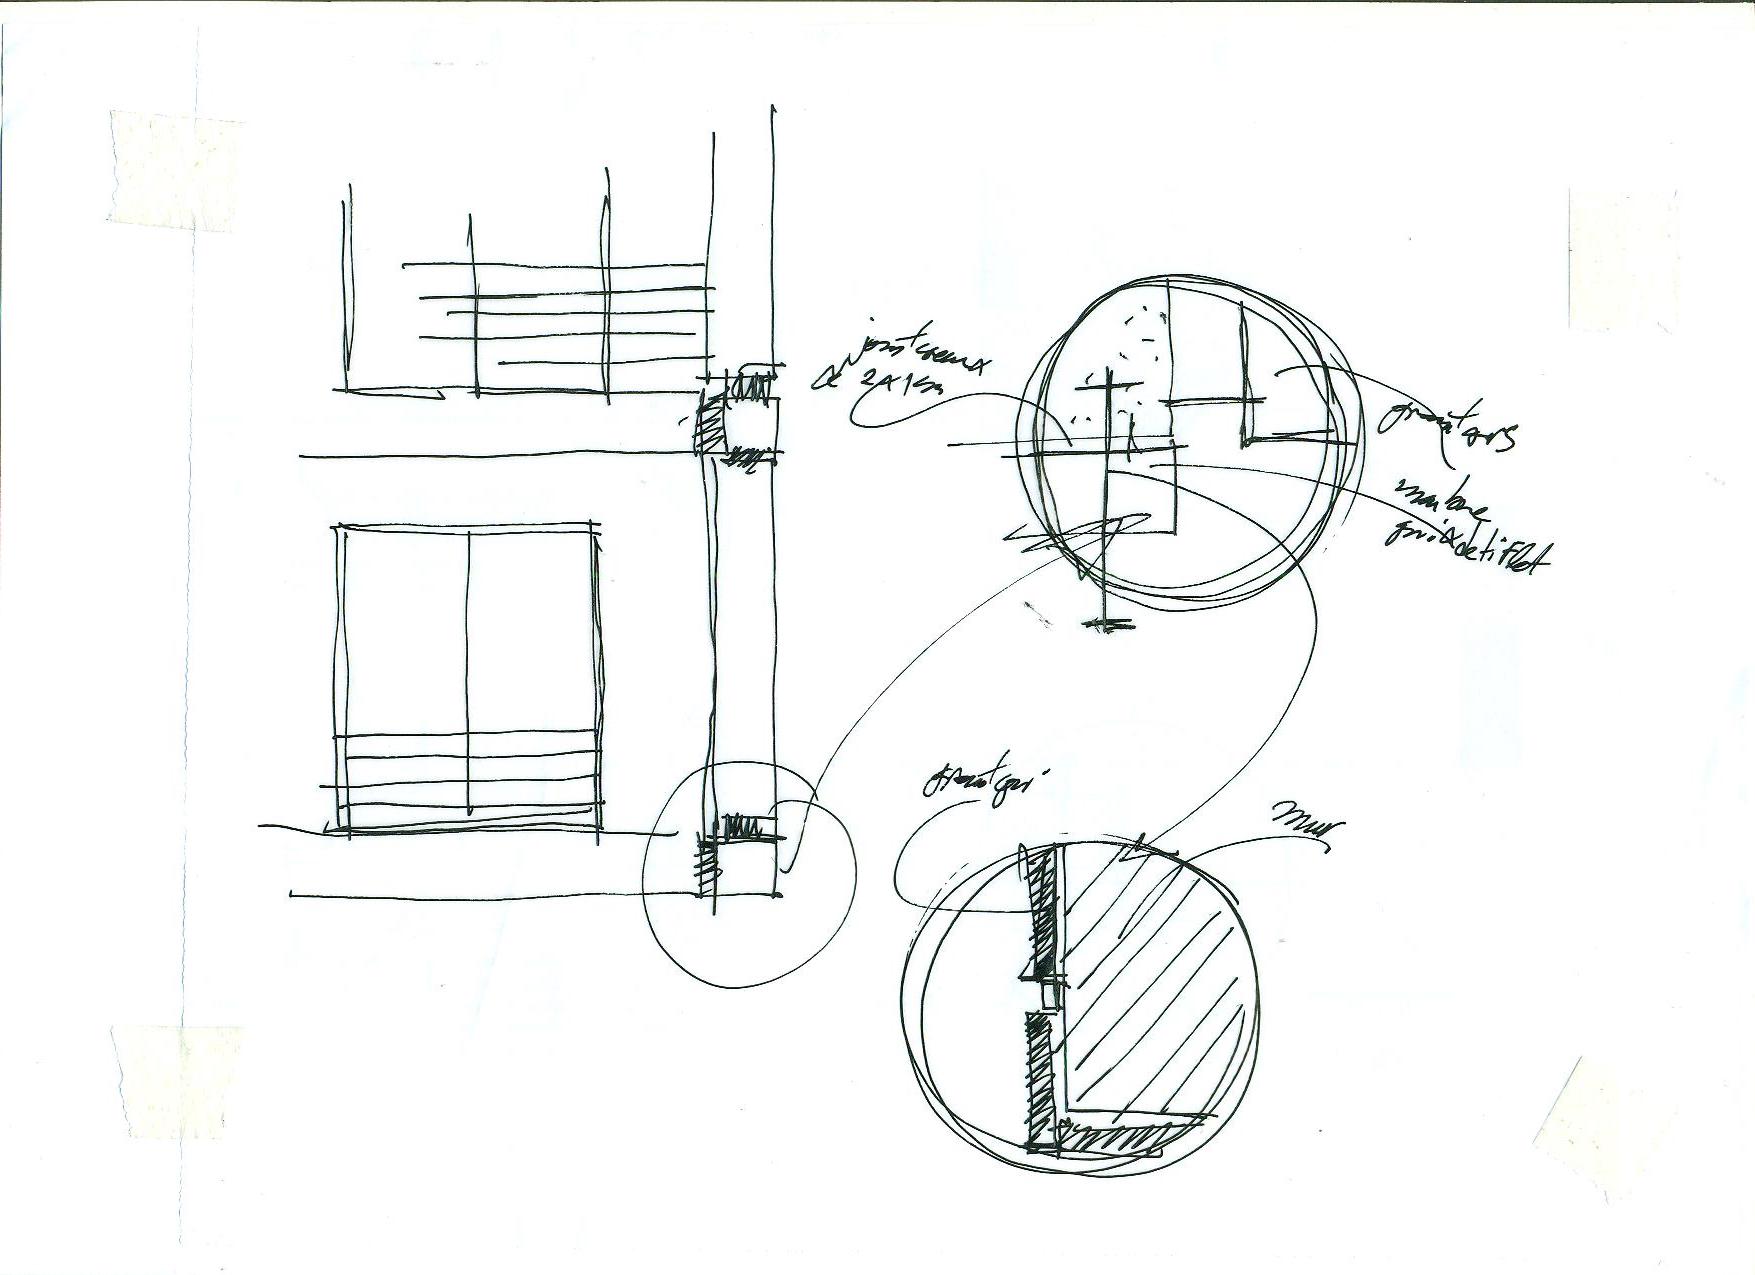 joint creux
de 2x1cm
granito
marbre
gris de tiflet
granit gris
mur